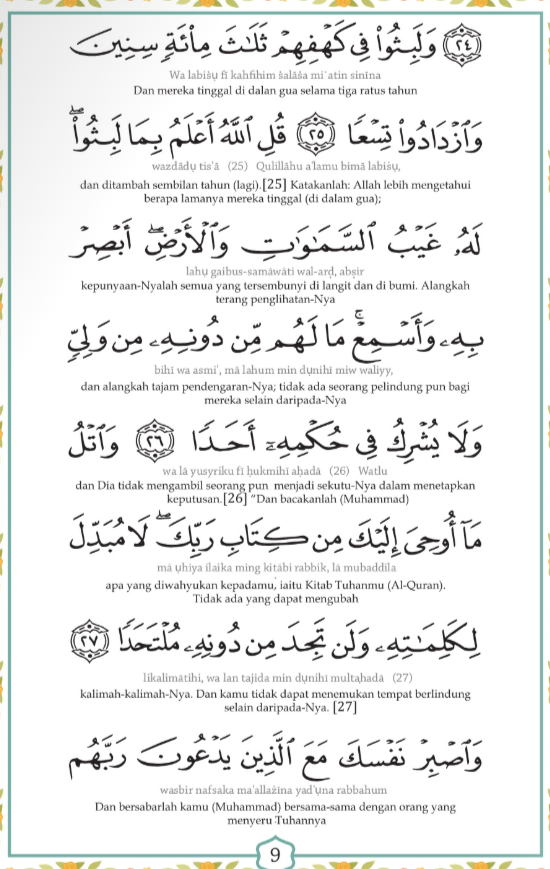 ﴿٢٤﴾ وَلَبِثُوا۟ فِى كَهْفِهِمْ ثَلَـٰثَ مِا۟ئَةٍ سِنِينَ
Wa labiṡụ fī kahfihim ṡalāṡa mi`atin sinīna
Dan mereka tinggal di dalan gua selama tiga ratus tahun
وَٱزْدَادُوا۟ تِسْعًا ﴿٢٥﴾ قُلِ ٱللَّهُ أَعْلَمُ بِمَا لَبِثُوا۟ۖ
wazdādụ tis'ā (25) Qulillāhu a'lamu bimā labiṡụ,
dan ditambah sembilan tahun (lagi).[25] Katakanlah: Allah lebih mengetahui
berapa lamanya mereka tinggal (di dalam gua);
لَهُۥ غَيْبُ ٱلسَّمَـٰوَٰتِ وَٱلْأَرْضِۖ أَبْصِرْ
lahụ gaibus-samāwāti wal-arḍ, abṣir
kepunyaan-Nyalah semua yang tersembunyi di langit dan di bumi. Alangkah
terang penglihatan-Nya
بِهِۦ وَأَسْمِعْۚ مَا لَهُم مِّن دُونِهِۦ مِن وَلِىٍّ
bihī wa asmi', mā lahum min dụnihī miw waliyy,
dan alangkah tajam pendengaran-Nya; tidak ada seorang pelindung pun bagi
mereka selain daripada-Nya
وَلَا يُشْرِكُ فِى حُكْمِهِۦٓ أَحَدًا ﴿٢٦﴾ وَٱتْلُ
wa lā yusyriku fī ḥukmihī aḥadā (26) Watlu
dan Dia tidak mengambil seorang pun menjadi sekutu-Nya dalam menetapkan
keputusan.[26] "Dan bacakanlah (Muhammad)
مَآ أُوحِىَ إِلَيْكَ مِن كِتَابِ رَبِّكَۖ لَا مُبَدِّلَ
mā ụḥiya ilaika ming kitābi rabbik, lā mubaddila
apa yang diwahyukan kepadamu, iaitu Kitab Tuhanmu (Al-Quran).
Tidak ada yang dapat mengubah
لِكَلِمَـٰتِهِۦ وَلَن تَجِدَ مِن دُونِهِۦ مُلْتَحَدًا ﴿٢٧﴾
likalimātihī, wa lan tajida min dụnihī multaḥadā (27)
kalimah-kalimah-Nya. Dan kamu tidak dapat menemukan tempat berlindung
selain daripada-Nya. [27]
وَٱصْبِرْ نَفْسَكَ مَعَ ٱلَّذِينَ يَدْعُونَ رَبَّهُم
wasbir nafsaka ma'allażīna yad'ụna rabbahum
Dan bersabarlah kamu (Muhammad) bersama-sama dengan orang yang
menyeru Tuhannya
9